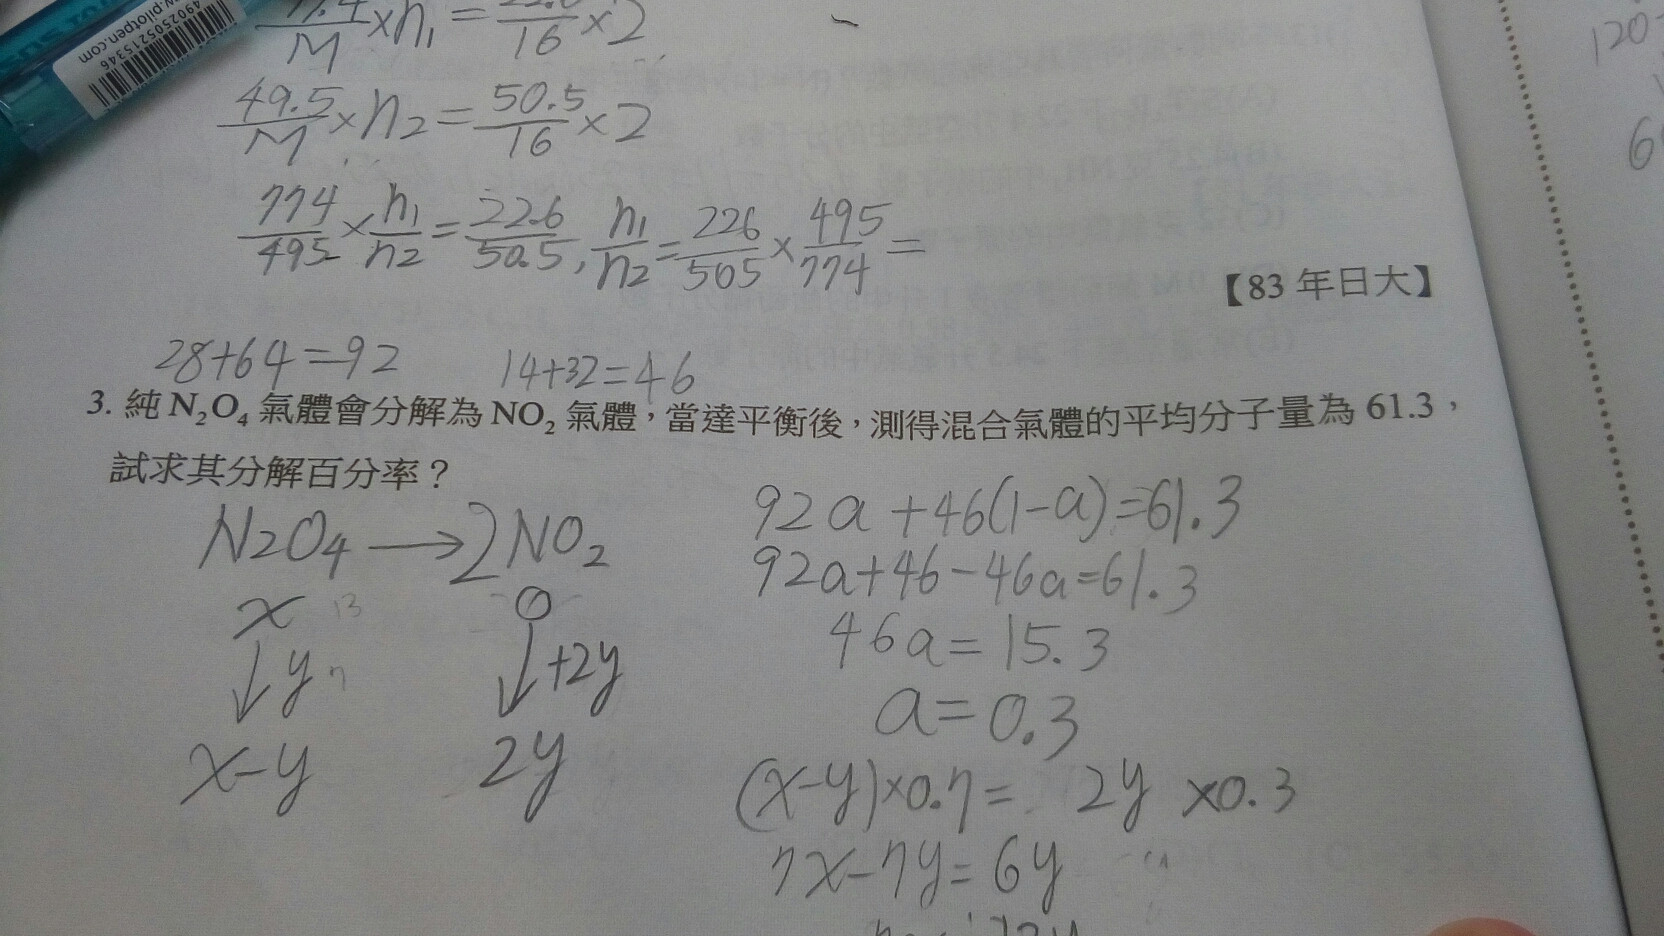 4902505215346
w.pilotpen.com
/M ×n₁ = /16 ×2
49.5/M ×n₂ = 50.5/16 ×2
774/495 × n₁/n₂ = 22.6/50.5, n₁/n₂ = 226/505 × 495/774 =
【83 年日大】
28+64=92 14+32=46
3. 純 N₂O₄ 氣體會分解為 NO₂ 氣體，當達平衡後，測得混合氣體的平均分子量為 61.3，
試求其分解百分率？
N₂O₄ → 2NO₂
x 0
↓ y ↓ +2y
x-y 2y
92a+46(1-a)=61.3
92a+46-46a=61.3
46a=15.3
a=0.3
(x-y)×0.7= 2y ×0.3
7x-7y=6y
120
6